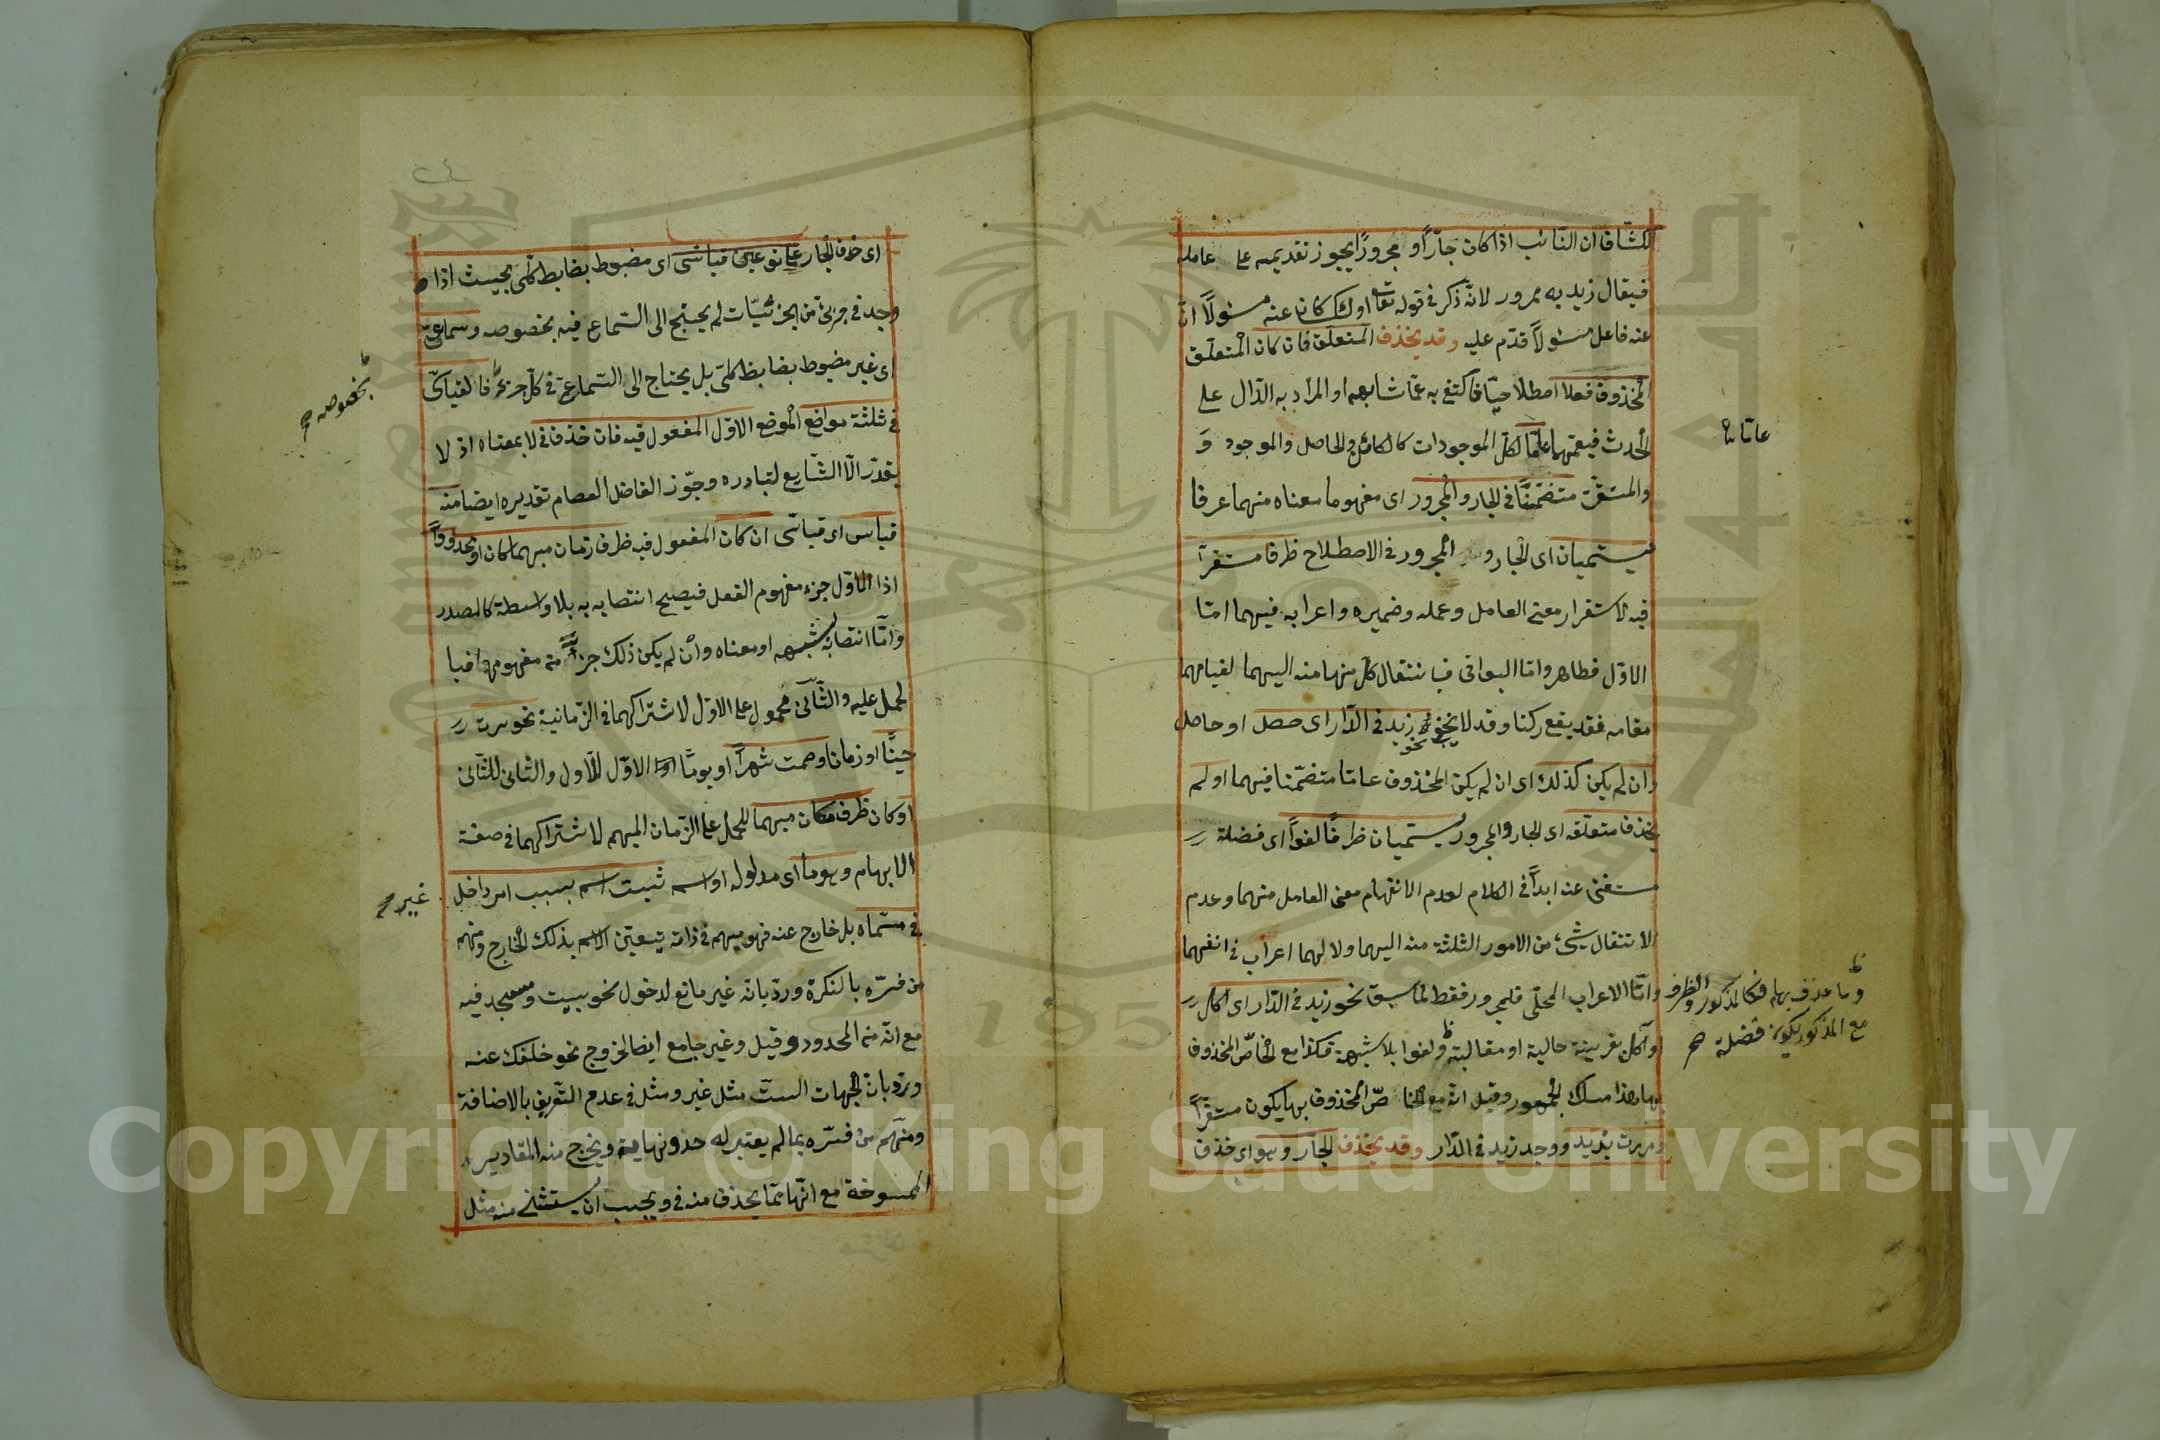 لكشاف ان النائب اذا كان جارًّا و مجرورًا يجوز تقديمه على عامله
فيقال زيد به ممرور لانه ذكر في قوله تعالى اولئك كان عنه مسئولًا ان
عنه فاعل مسئولًا قدم عليه وقد يحذف المتعلق فان كان المتعلق
المحذوف فعلا اصطلاحيًا فاكتفى به عما شابهه او المراد به الدال على
الحدث فيعمهما عامًّا لكل الموجودات كالكائن والحاصل والموجود و
والمستقر متضمنًا في الجار والمجرور اى مفهوما معناه منهما عرفا
يسميان اى الجار و المجرور في الاصطلاح ظرفا مستقرًا
فيه لاستقرار معنى العامل وعمله وضميره واعرابه فيهما اما
الاول فظاهر واما البواقى فبانتقال كل منها منه اليهما لقيامهما
مقامه فقد يقع ركنا وقد لا نحو زيد في الدار اى حصل او حاصل
وان لم يكن كذلك اى ان لم يكن المحذوف عاما متضمنا فيهما او لم
يحذف متعلقه اى الجار والمجرور يسميان ظرفًا لغوًا اى فضلة
مستغنى عنه ابدًا في الكلام لعدم الانفهام معنى العامل منهما وعدم
الانتقال شئ من الامور الثلثة منه اليهما ولا لهما اعراب في انفسهما
واما الاعراب المحلى فلمجرور فقط لما سبق نحو زيد في الدار اى اكل
او آكل بقرينة حالية او مقالية ولغوا بلا شبهة هكذا مع الخاص المحذوف
بها هذا مسلك الجمهور وقيل انه مع الخاص المحذوف بها يكون مستقرًا
ومررت بزيد ووجد زيد في الدار وقد يحذف الجار وهو اى حذف
عاما
وما حذف بها فكالمذكور والظرف
مع المذكور يكون فضلة صح
اى حذف الجار على نوعين قياسى اى مضبوط بضابط كلى بحيث اذا
وجد في جزئى من الجزئيات لم يحتج الى السماع فيه بخصوصه وسماعى
اى غير مضبوط بضابط كلى بل يحتاج الى السماع في كل جزئى فالقياسى
في ثلثة مواضع الموضع الاول المفعول فيه فان حذف في لا بمعناه اذ لا
يقدر الا الشايع لتبادره وجوز الفاضل العصام تقديره ايضا منه
قياس اى قياسى ان كان المفعول فيه ظرف زمان مبهما كان او محدودًا
اذا الاول جزء مفهوم الفعل فيصح انتصابه به بلا واسطة كالمصدر
واما انتصابه بشبهه او معناه وان لم يكن ذلك جزءً من مفهومهما فبا
لحمل عليه والثانى محمول على الاول لاشتراكهما في الزمانية نحو سرت
حينًا او زمانا وصمت شهرًا او يومًا الاول للاول والثانى للثانى
او كان ظرف مكان مبهما للحمل على الزمان المبهم لاشتراكهما في صفة
الابهام وهو ما اى مدلوله او اسم ثبت اسم بسبب امر داخل
في مسماه بل خارج عنه فهو مبهم في ذاته يتعين الاسم بذلك الخارج ومنهم
من فسره بالنكرة ورد بانه غير مانع لدخول نحو بيت ومسجد فيه
مع انه من المحدود وقيل وغير جامع ايضا لخروج نحو خلفك عنه
ورد بان الجهات الست مثل غير ومثل في عدم التعريف بالاضافة
ومنهم من فسره بما لم يعتبر له حد ونهاية ويخرج منه المقادير
الممسوحة مع انها مما يحذف منه في ويجب ان يستثنى منه مثل
بخصوصه
غير